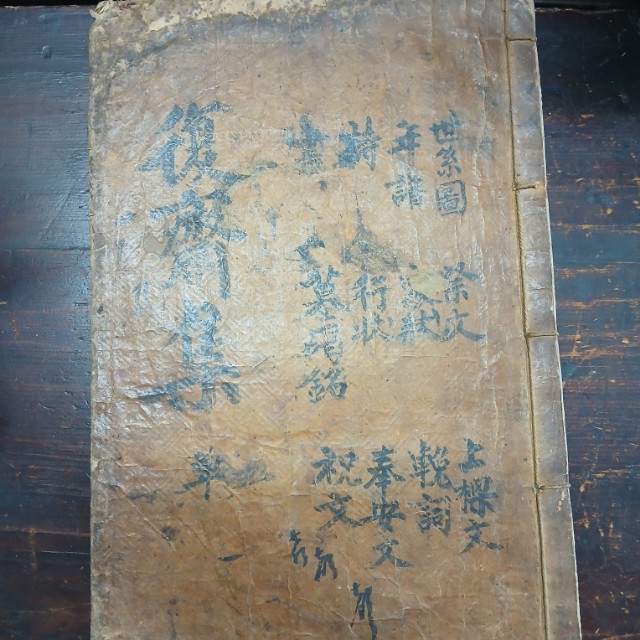 世系圖
年譜
詩
書
祭文
行狀
墓碣銘
上樑文
輓詞
奉安文
祝文
復齋集
單